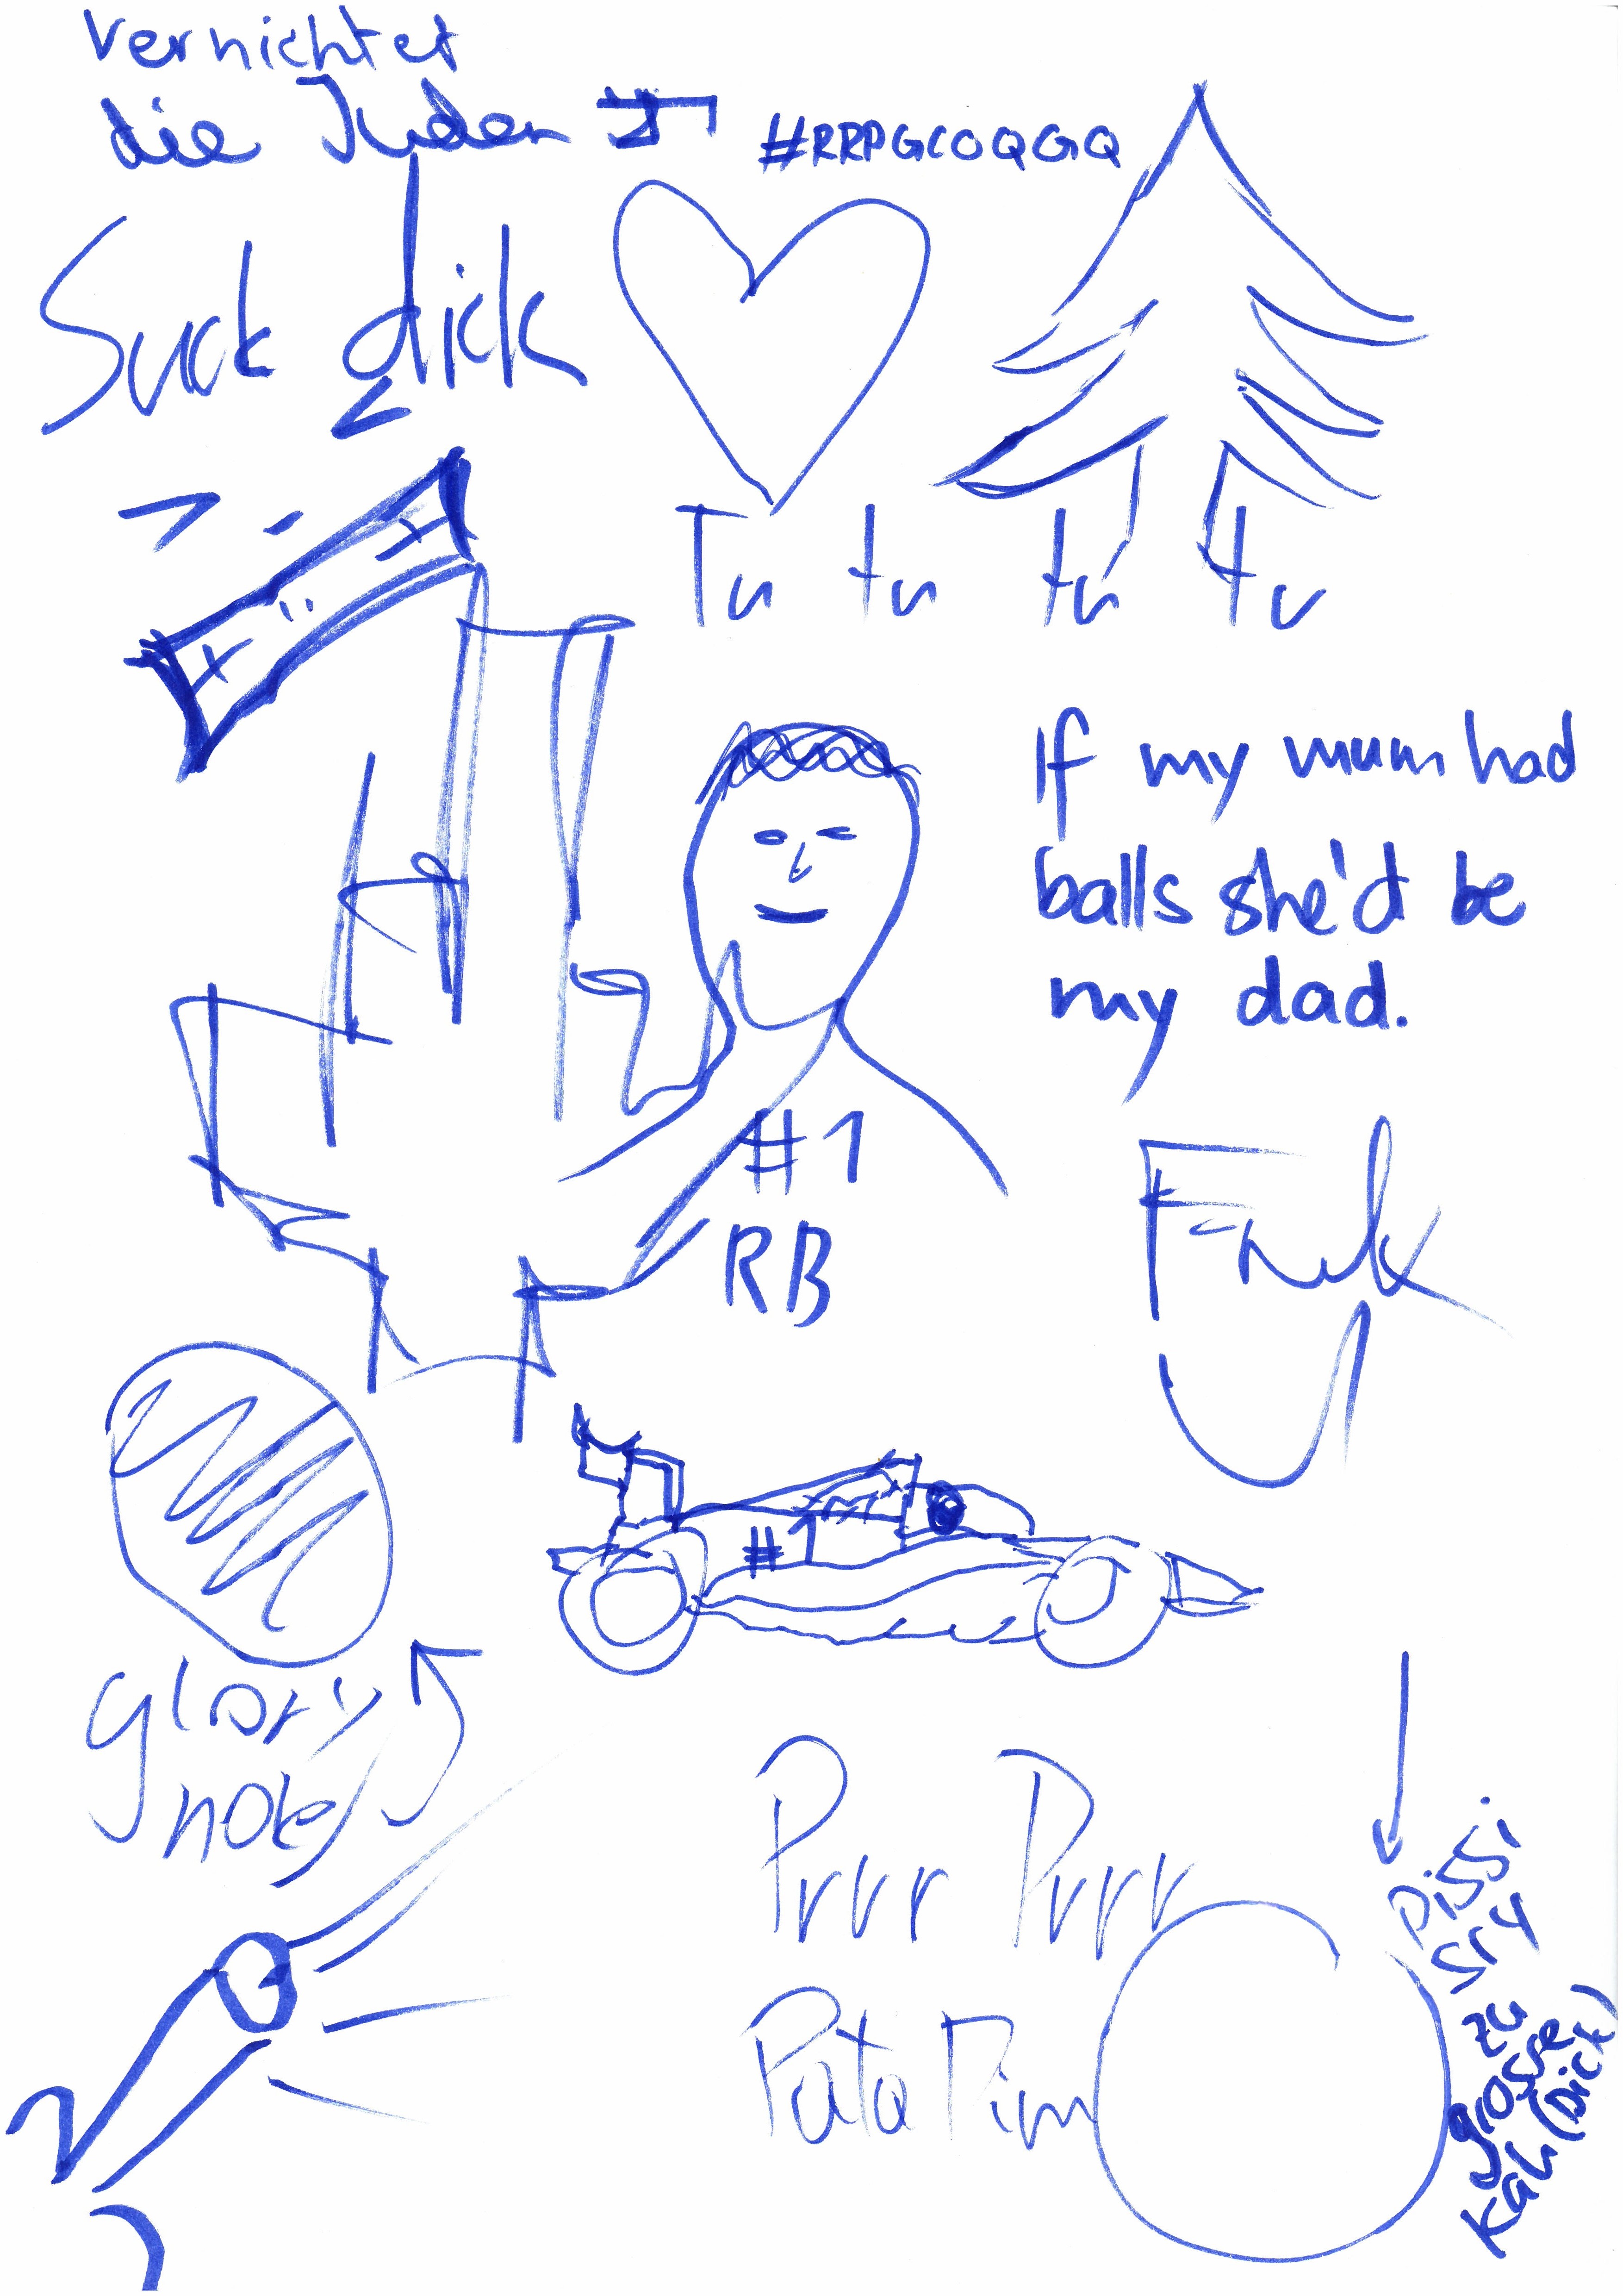 Vernichtet
die Juden
#RRPGCOQGQ
Suck dick
Tu tu tu tu
If my mum had
balls she'd be
my dad.
#1
RB
Fuck
U
#1
glory
hole
Prrr Prrr
Pata Pim
pissi
sry
zu
grosse
(Dick)